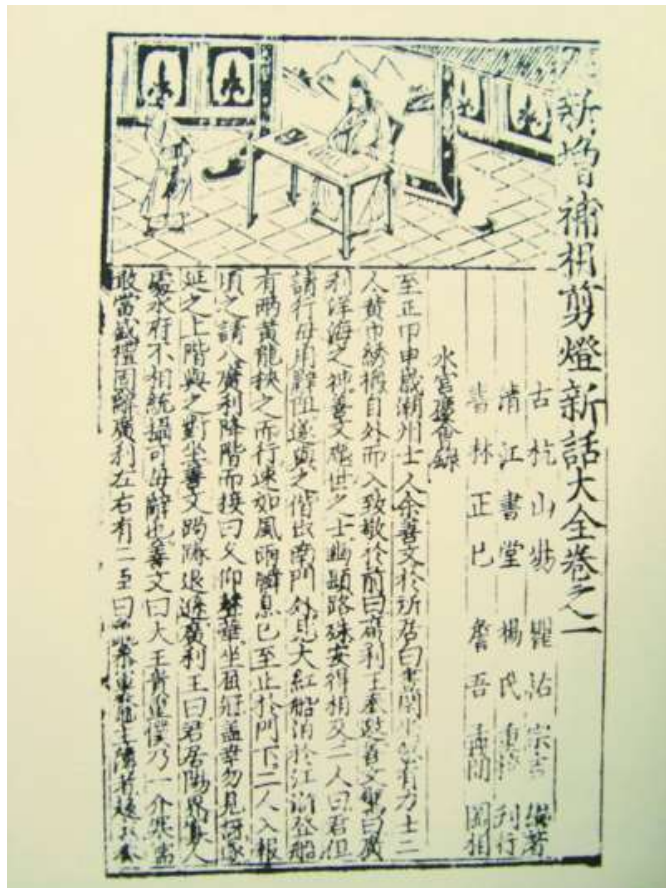 新增補相剪燈新話大全卷之一
古杭山陽瞿佑宗吉編著
清江書堂楊氏重校刊行
書林正巳詹吾孟簡圖相
水宮慶會錄
至正甲申歲潮州士人余善文於所居白晝閒坐忽有力士二
人黃巾綉襖自外而入致敬於前曰廣利王奉邀善文驚曰廣
利洋海之神善文塵世之士幽顯路殊安得相及二人曰君但
請行毋用辭阻遂與之偕出南門外見大紅船泊於江滸登船
有兩黃龍挾之而行速如風雨瞬息已至止於門下二人入報
頃之請入廣利降階而接曰久仰聲華坐屈冠蓋幸勿見訝遂
延之上階與之對坐善文跼蹐退遜廣利王曰君居陽界寡人
處水府不相統攝可毋辭也善文曰大王貴重僕乃一介寒儒
敢當盛禮固辭廣利左右有二臣曰